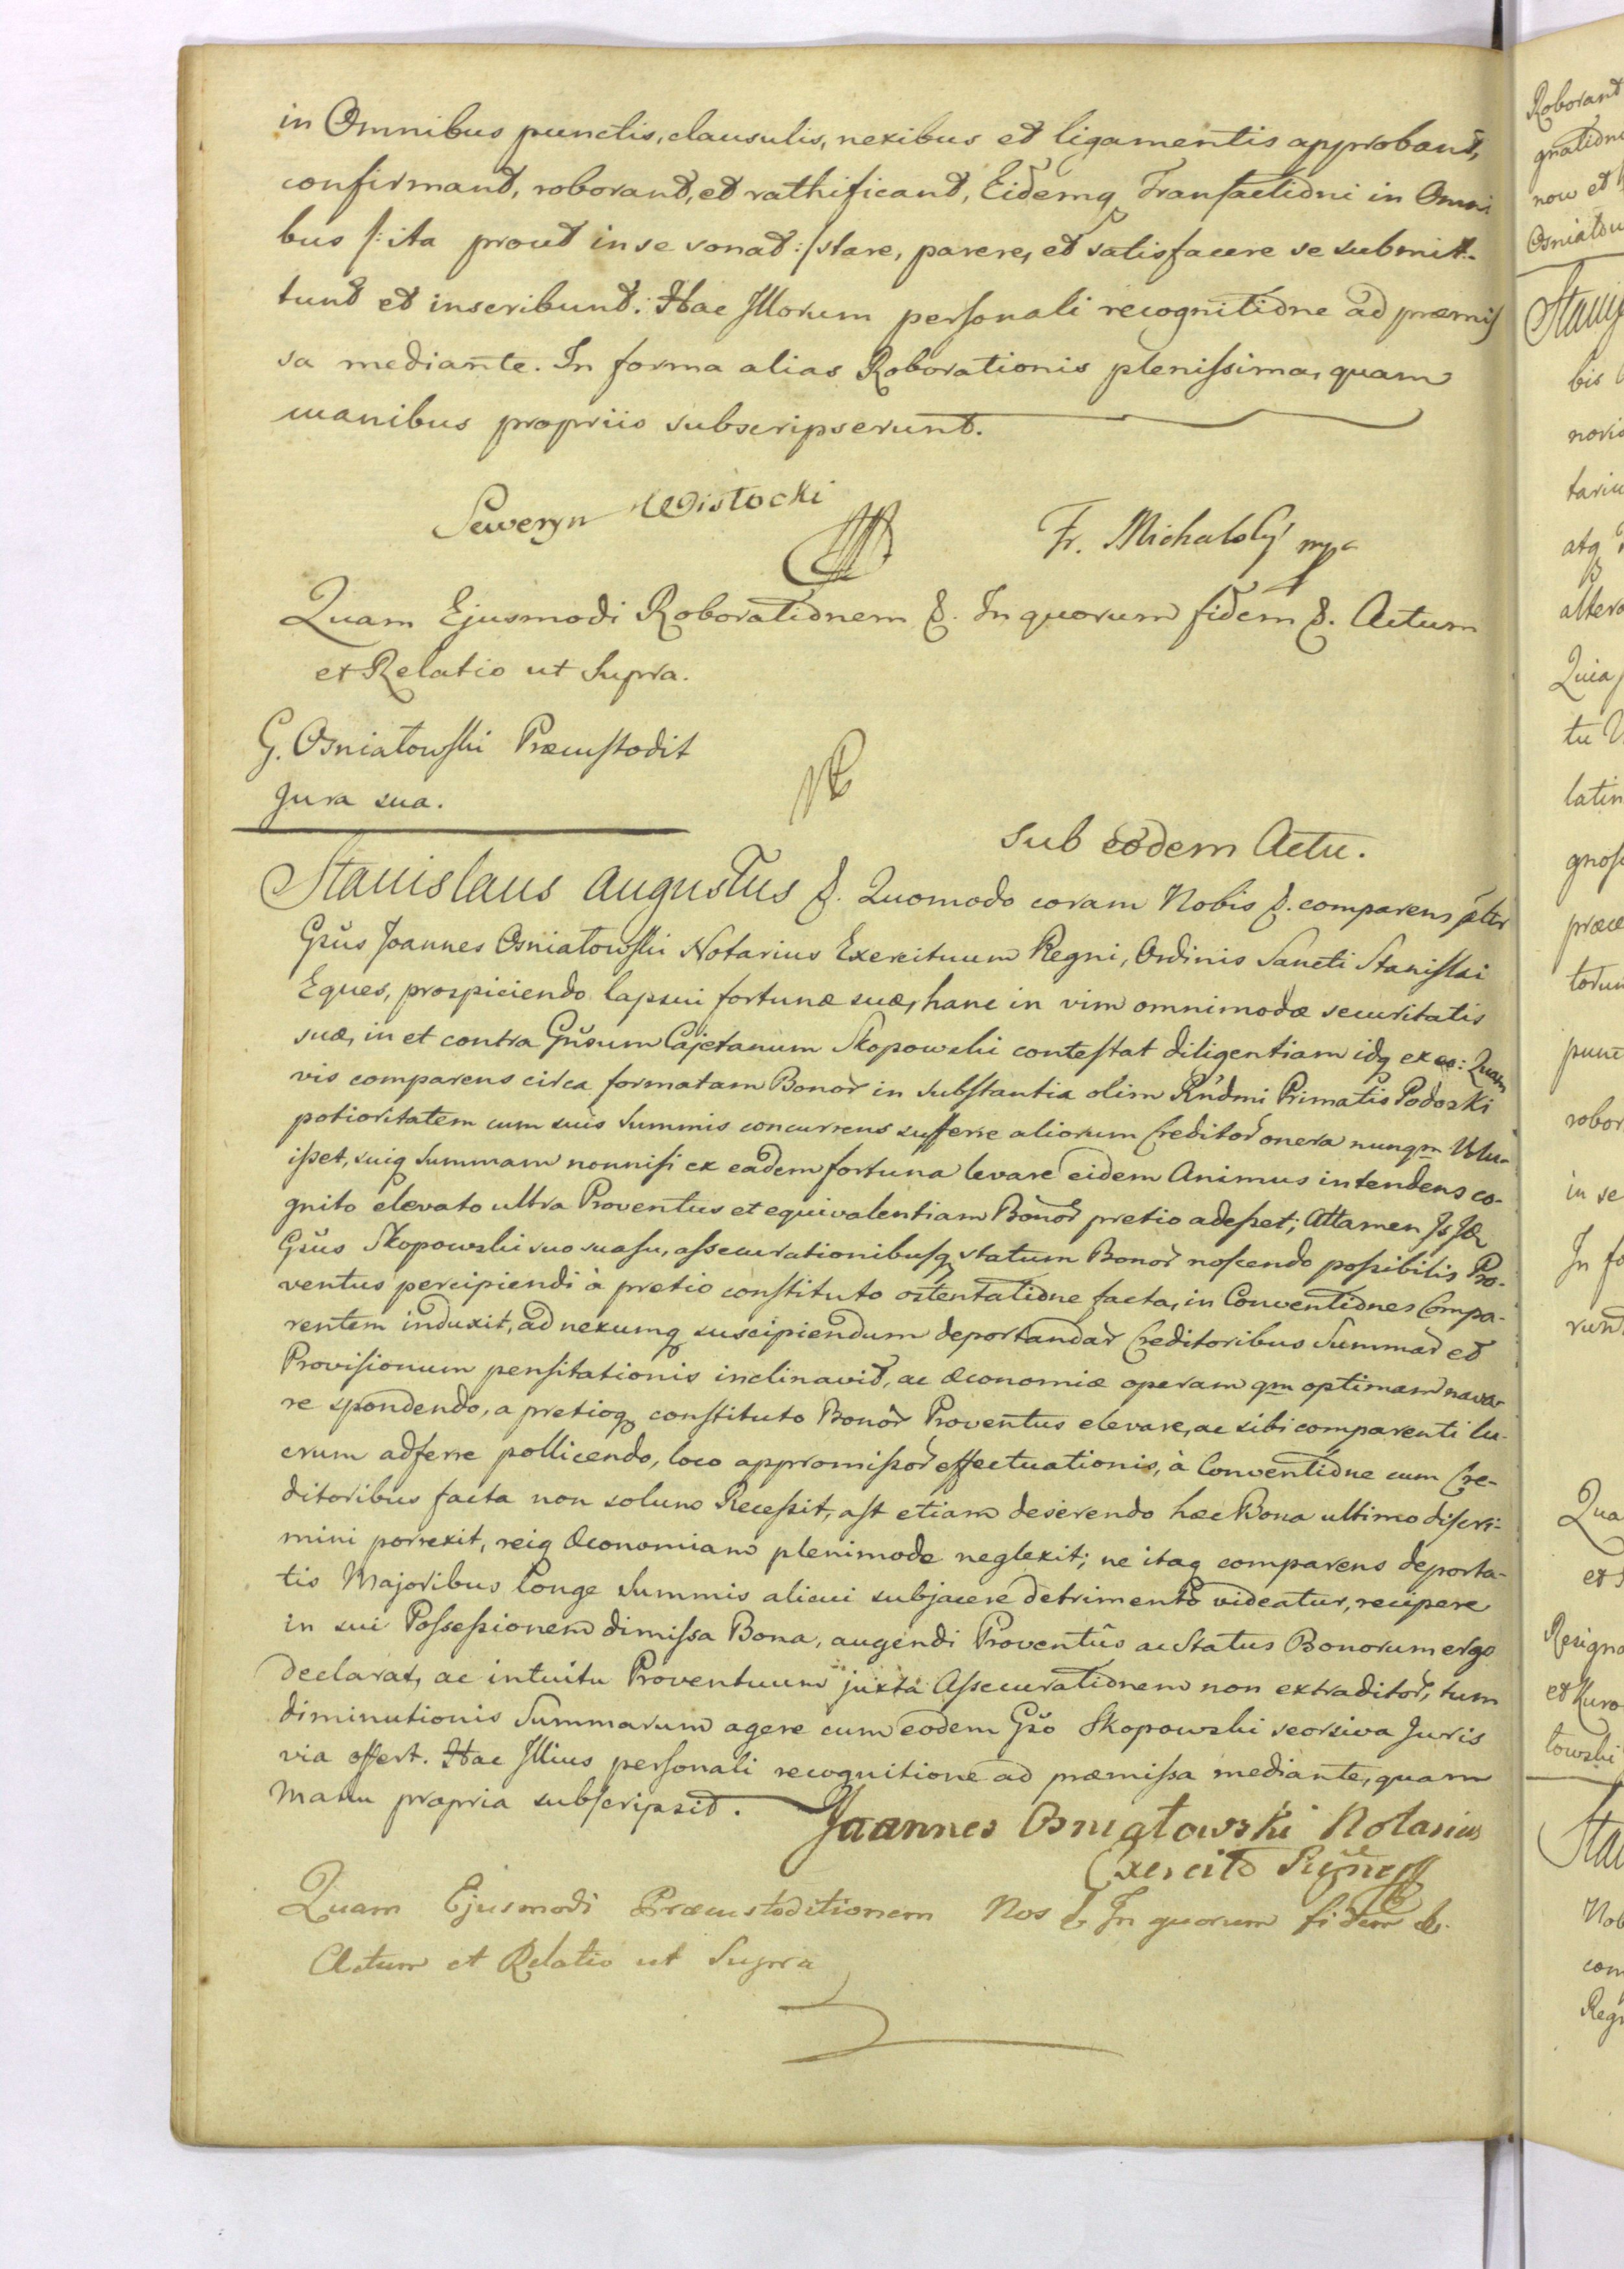 in Omnibus punctis, clausulis, nexibus et ligamentis approbant,
confirmant, roborant, et rathificant, Eidemq Transactioni in Omni
bus /: ita prout in se sonat :/ stare, parere, et satisfacere se submit-
tunt et inscribunt: Hac Illorum personali recognitione ad præmis
sa mediante. In forma alias Roborationis plenissima, quam
manibus propriis subscripserunt.
Seweryn Wisłocki
Fr. Michalsky mp
Quam Ejusmodi Roborationem &. In quorum fidem &. Actum
et Relatio ut Supra.
G. Osniałowski Præcustodit
Jura sua.
Sub eodem Actu.
Stanislaus Augustus &. Quomodo coram Nobis &. comparens pltr
Gsus Joannes Osniałowski Notarius Exercituum Regni, Ordinis Sancti Stanislai
Eques, prospiciendo lapsui fortunæ suæ, hanc in vim omnimodæ securitatis
suæ, in et contra Gnsum Cajetanum Skopowski contestat diligentiam idq ex eo: Quam
vis comparens circa formatam Bonor in substantia olim Rndmi Primatis Podoski
potioritatem cum suis Summis concurrens sufferre aliorum Creditor onera nunqm Volu-
isset, suiq Summam nonnisi ex eadem fortuna levare eidem Animus intendens co-
gnito elevato ultra Proventus et equivalentiam Bonor pretio adesset; Attamen Is Ide
Gsus Skopowski suo suasu, assecurationibusq statum Bonor noscendo possibilis Pro-
ventus percipiendi à pretio constituto ostentatione facta, in Conventiones Compa-
rentem induxit, ad nexumq suscipiendum deportandar Creditoribus Summar et
Provisionum pensitationis inclinavit, ac œconomiæ operam qm optimam nava-
re spondendo, a pretioq constituto Bonor Proventus elevare, ac sibi comparenti lu-
crum adferre pollicendo, loco appromissor effectuationis, à Conventione cum Cre-
ditoribus facta non solum Recessit, ast etiam deserendo hæc Bona ultimo discri-
mini porrexit, reiq Œconomiam plenimode neglexit; ne itaq comparens deporta-
tis Majoribus longe Summis alicui subjacere detrimento videatur, recipere
in sui Possessionem dimissa Bona, augendi Proventus ac Status Bonorum ergo
declarat, ac intuitu Proventuum juxta Assecurationem non extraditor, tum
diminutionis Summarum agere cum eodem Gso Skopowski seorsiva Juris
via offert. Hac Illius personali recognitione ad præmissa mediante, quam
Manu propria subscripsit.
Joannes Osniałowski Notarius
Quam Ejusmodi Præcustoditionem Nos & In quorum fidem &.
Actum et Relatio ut Supra